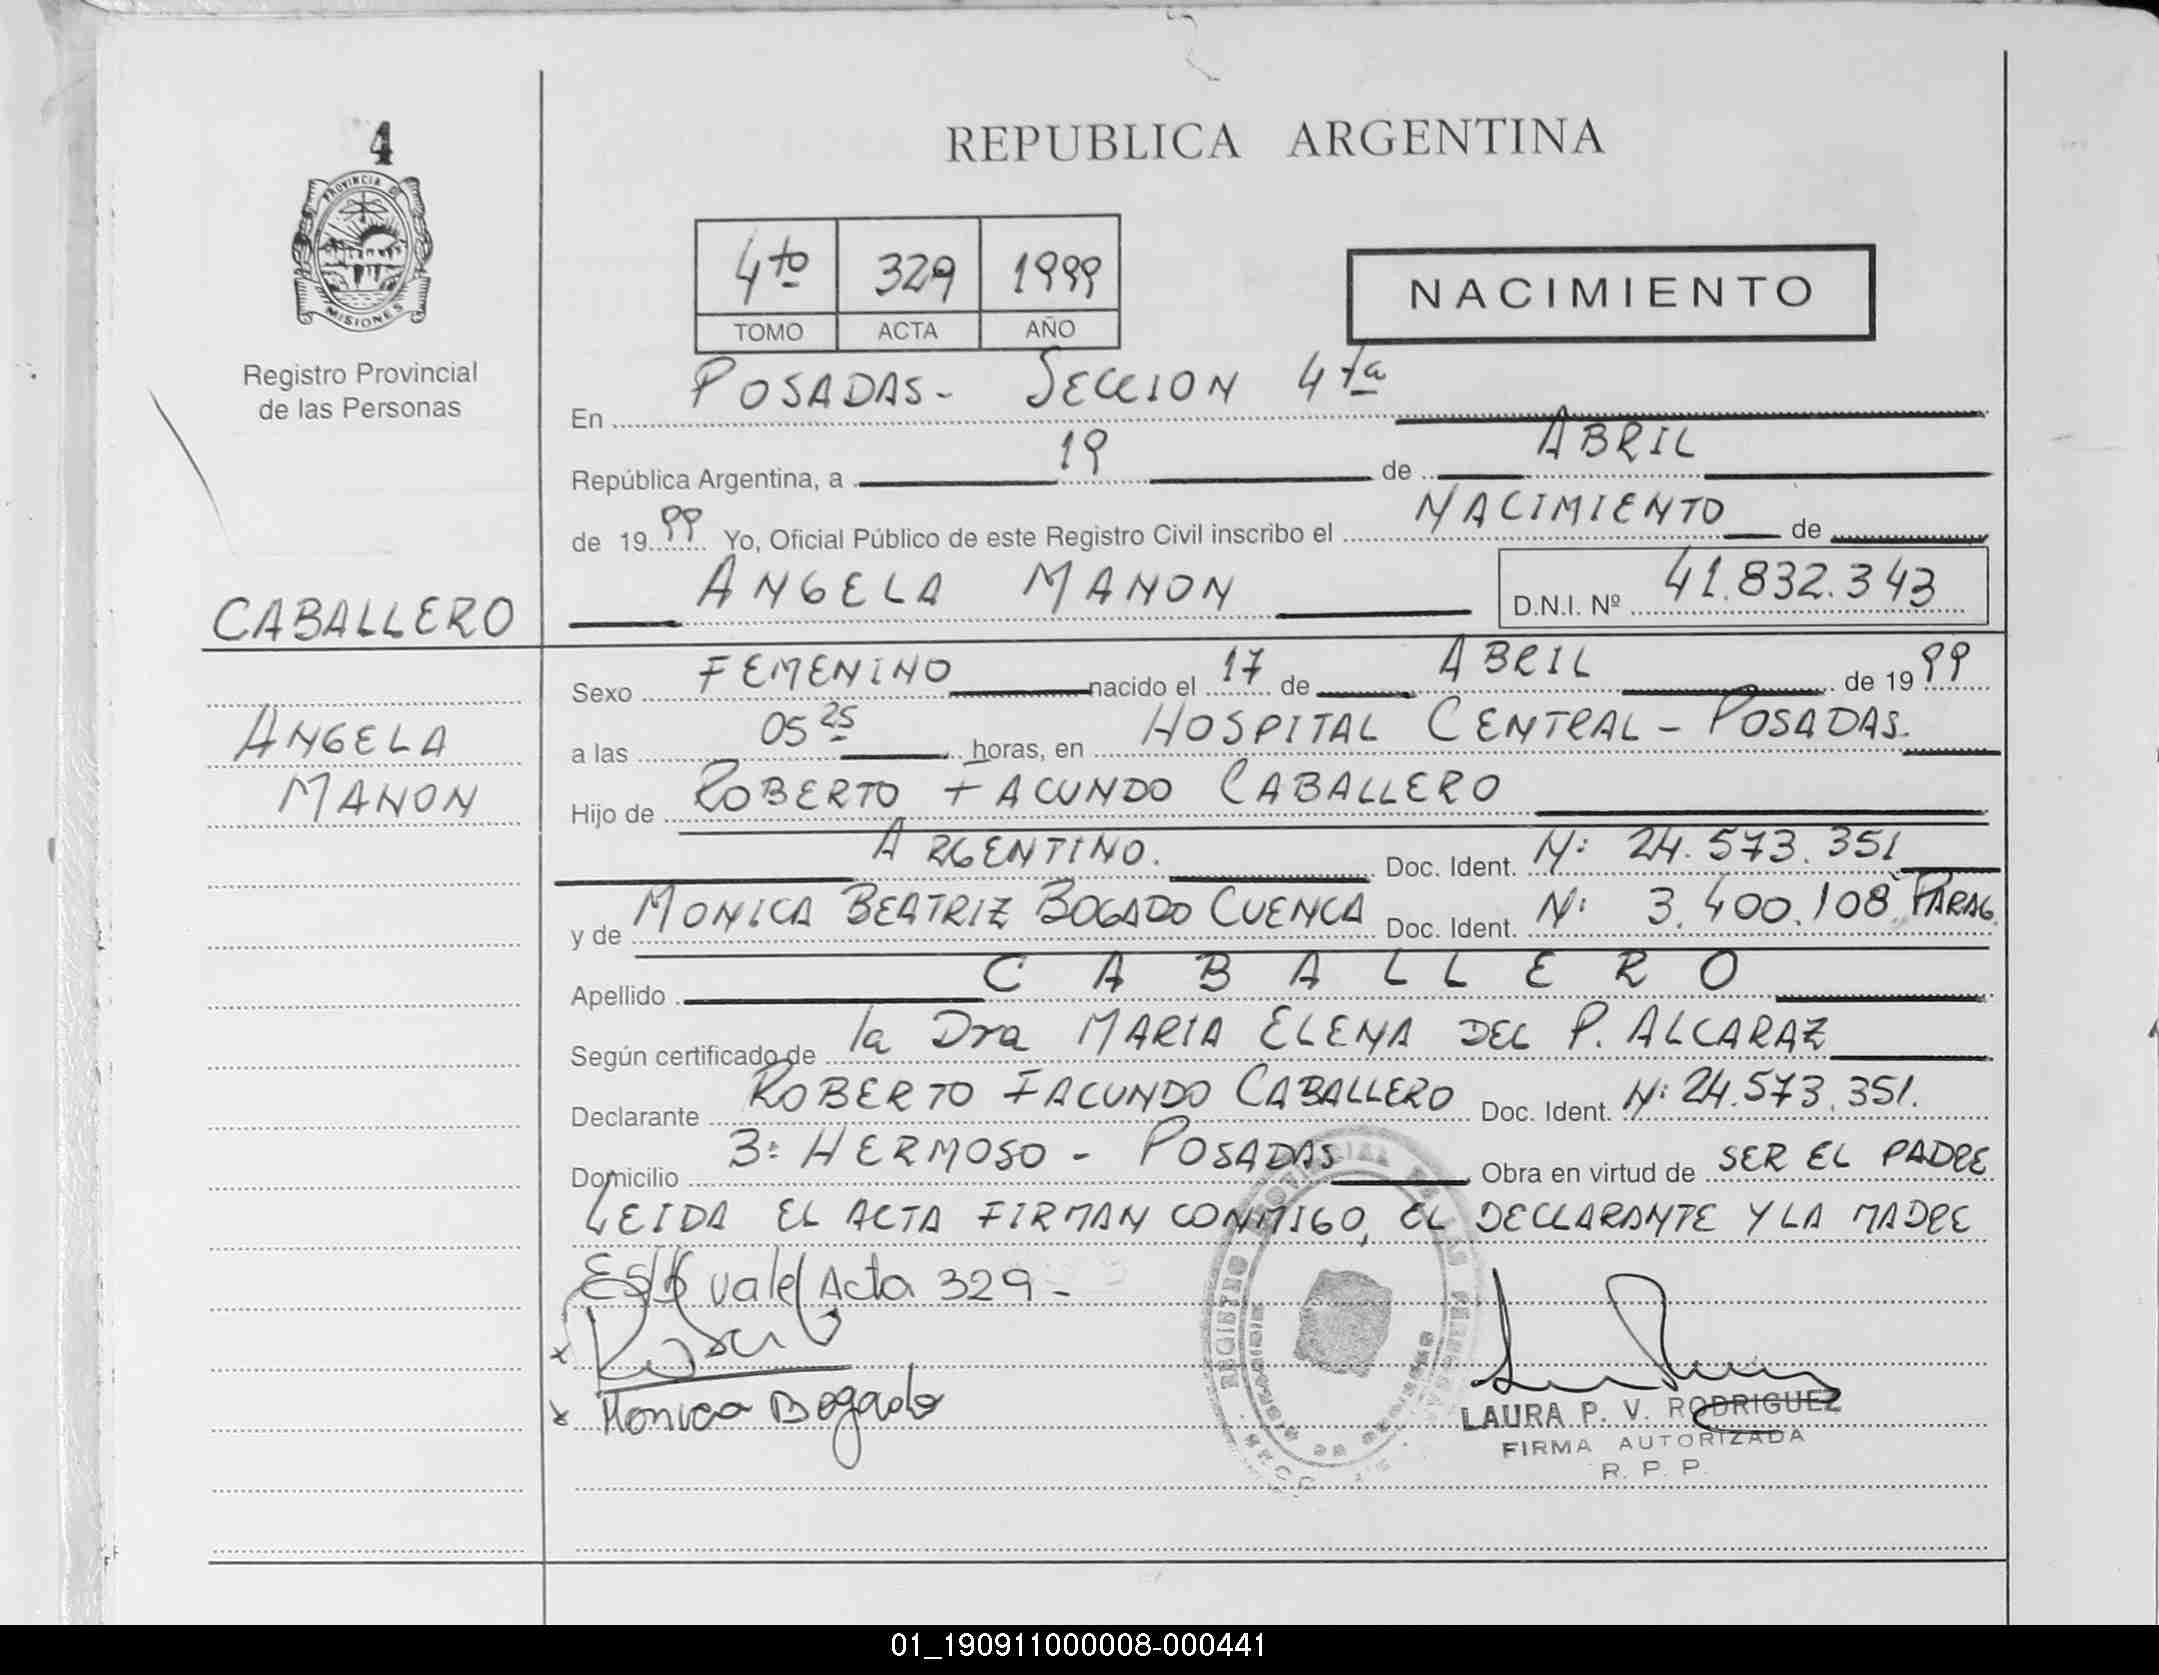 4
PROVINCIA DE
MISIONES
Registro Provincial
de las Personas
REPUBLICA ARGENTINA
4to 329 1999
TOMO ACTA AÑO
NACIMIENTO
En POSADAS - SECCION 4ta
República Argentina, a 19 de ABRIL
de 1999 Yo, Oficial Público de este Registro Civil inscribo el NACIMIENTO de
ANGELA MANON D.N.I. Nº 41.832.343
CABALLERO
ANGELA
MANON
Sexo FEMENINO nacido el 17 de ABRIL de 1999
a las 05 25 horas, en HOSPITAL CENTRAL - POSADAS.
Hijo de ROBERTO FACUNDO CABALLERO
ARGENTINO. Doc. Ident. N: 24.573.351
y de MONICA BEATRIZ BOGADO CUENCA Doc. Ident. N: 3.400.108 PARAG.
Apellido CABALLERO
Según certificado de la Dra MARIA ELENA DEL P. ALCARAZ
Declarante ROBERTO FACUNDO CABALLERO Doc. Ident. N: 24.573.351.
Domicilio Bº HERMOSO - POSADAS Obra en virtud de SER EL PADRE
LEIDA EL ACTA FIRMAN CONMIGO, EL DECLARANTE Y LA MADRE
vale Acta 329 -
x
x Monica Bogado
REGISTRO PROVINCIAL DE LAS PERSONAS
LAURA P. V. RODRIGUEZ
FIRMA AUTORIZADA
R. P. P.
01_190911000008-000441